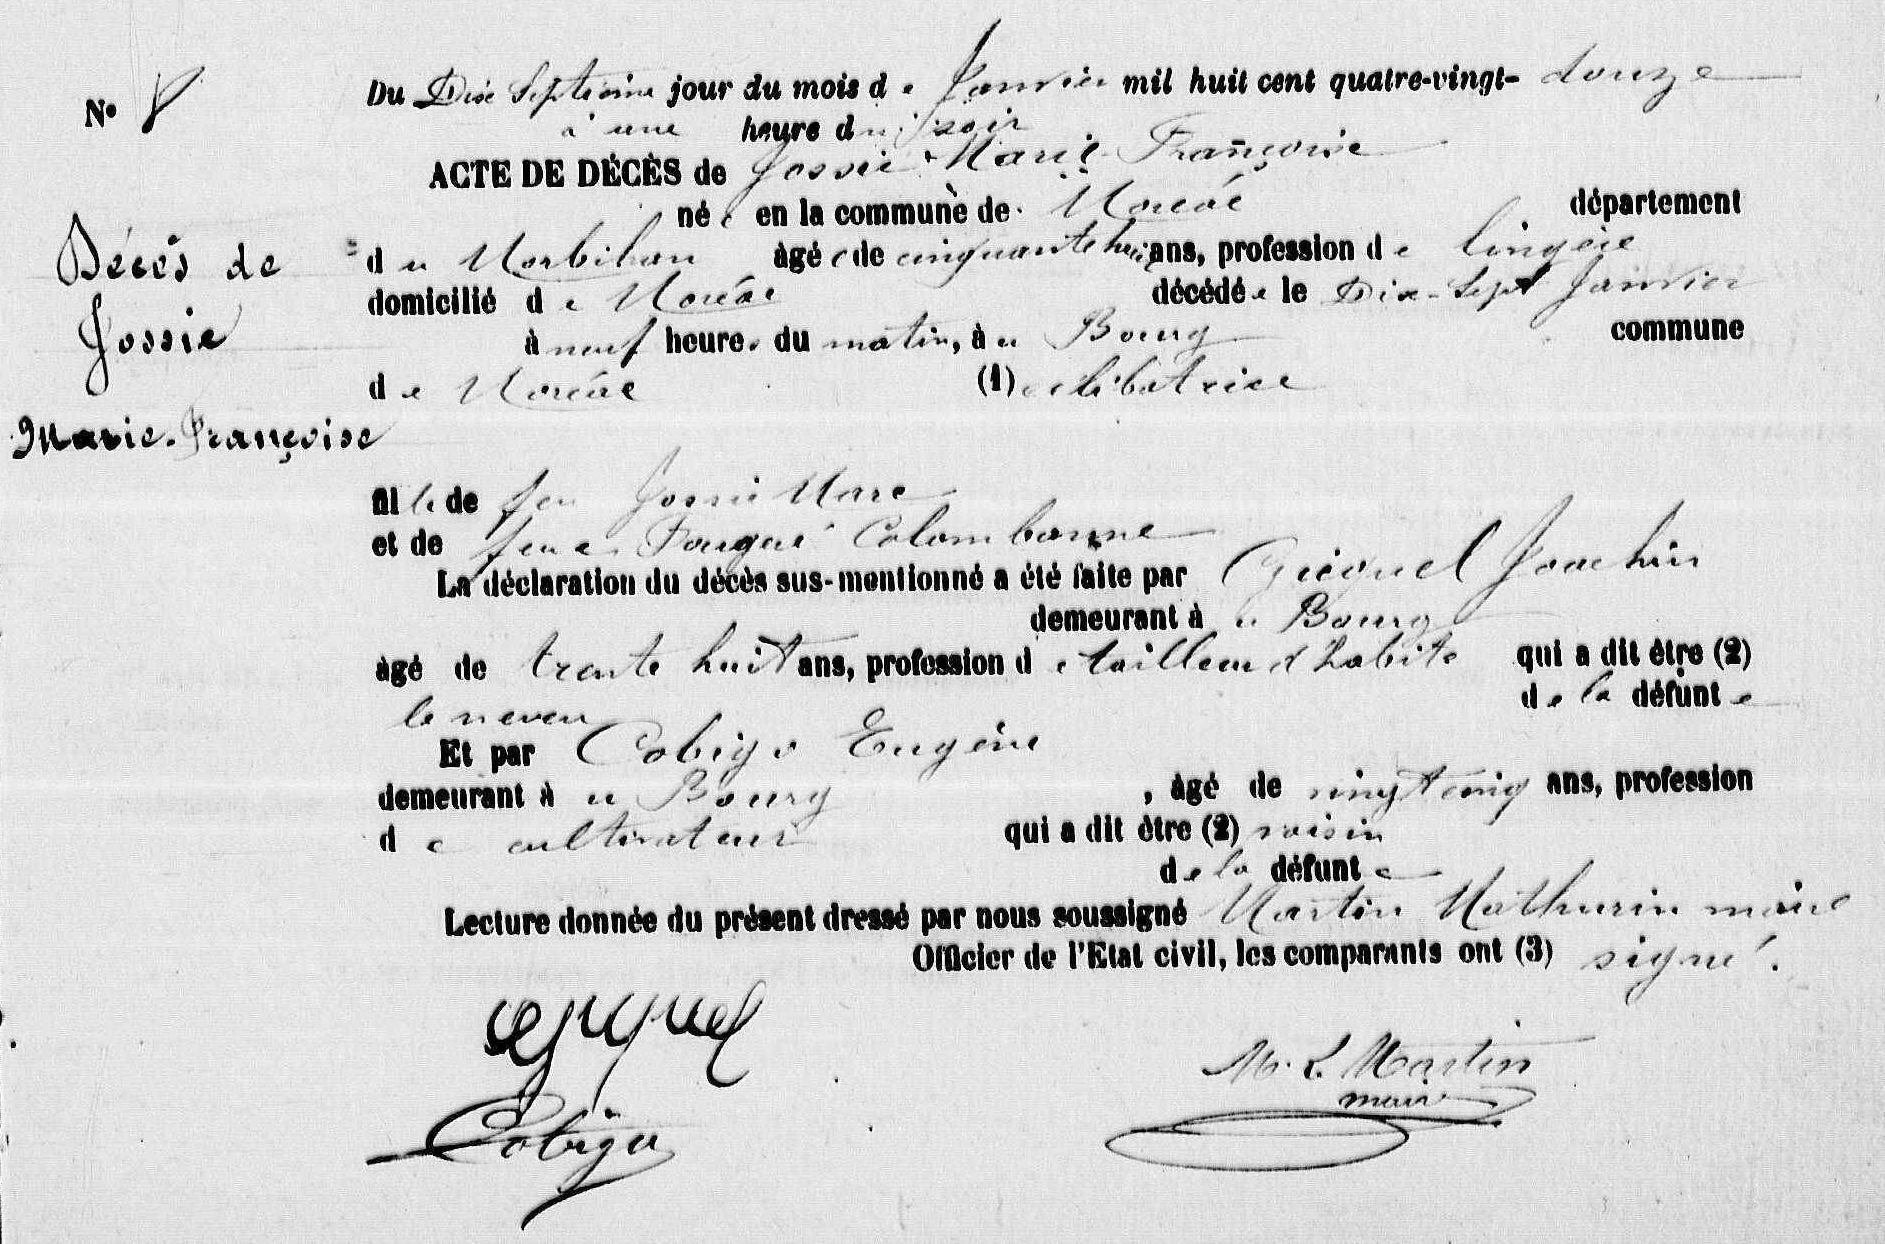 N° 8
Du Dix Septieme jour du mois de Janvier mil huit cent quatre-vingt- douze
à une heure du soir
ACTE DE DÉCÈS de Jossie Marie Françoise
née en la commune de Moréac département
Décès de
Jossie
Marie-Françoise
du Morbihan âgée de cinquante huit ans, profession de lingère
domicilié de Moréac décédée le Dix-Sept Janvier
à neuf heures du matin, au Bourg commune
de Moréac (1) célibatrice
fille de feu Jossie Marc
et de feue Fouqué Colombanne
La déclaration du décès sus-mentionné a été faite par Gicquel Joachin
demeurant au Bourg
âgé de trente huit ans, profession de tailleur d'habits qui a dit être (2)
le neveu de la défunte
Et par Cobigo Eugène
demeurant au Bourg , âgé de vingt cinq ans, profession
de cultivateur qui a dit être (2) voisin
de la défunte
Lecture donnée du présent dressé par nous soussigné Martin Mathurin maire
Officier de l'Etat civil, les comparants ont (3) signé.
M. L. Martin
maire
Cobigo